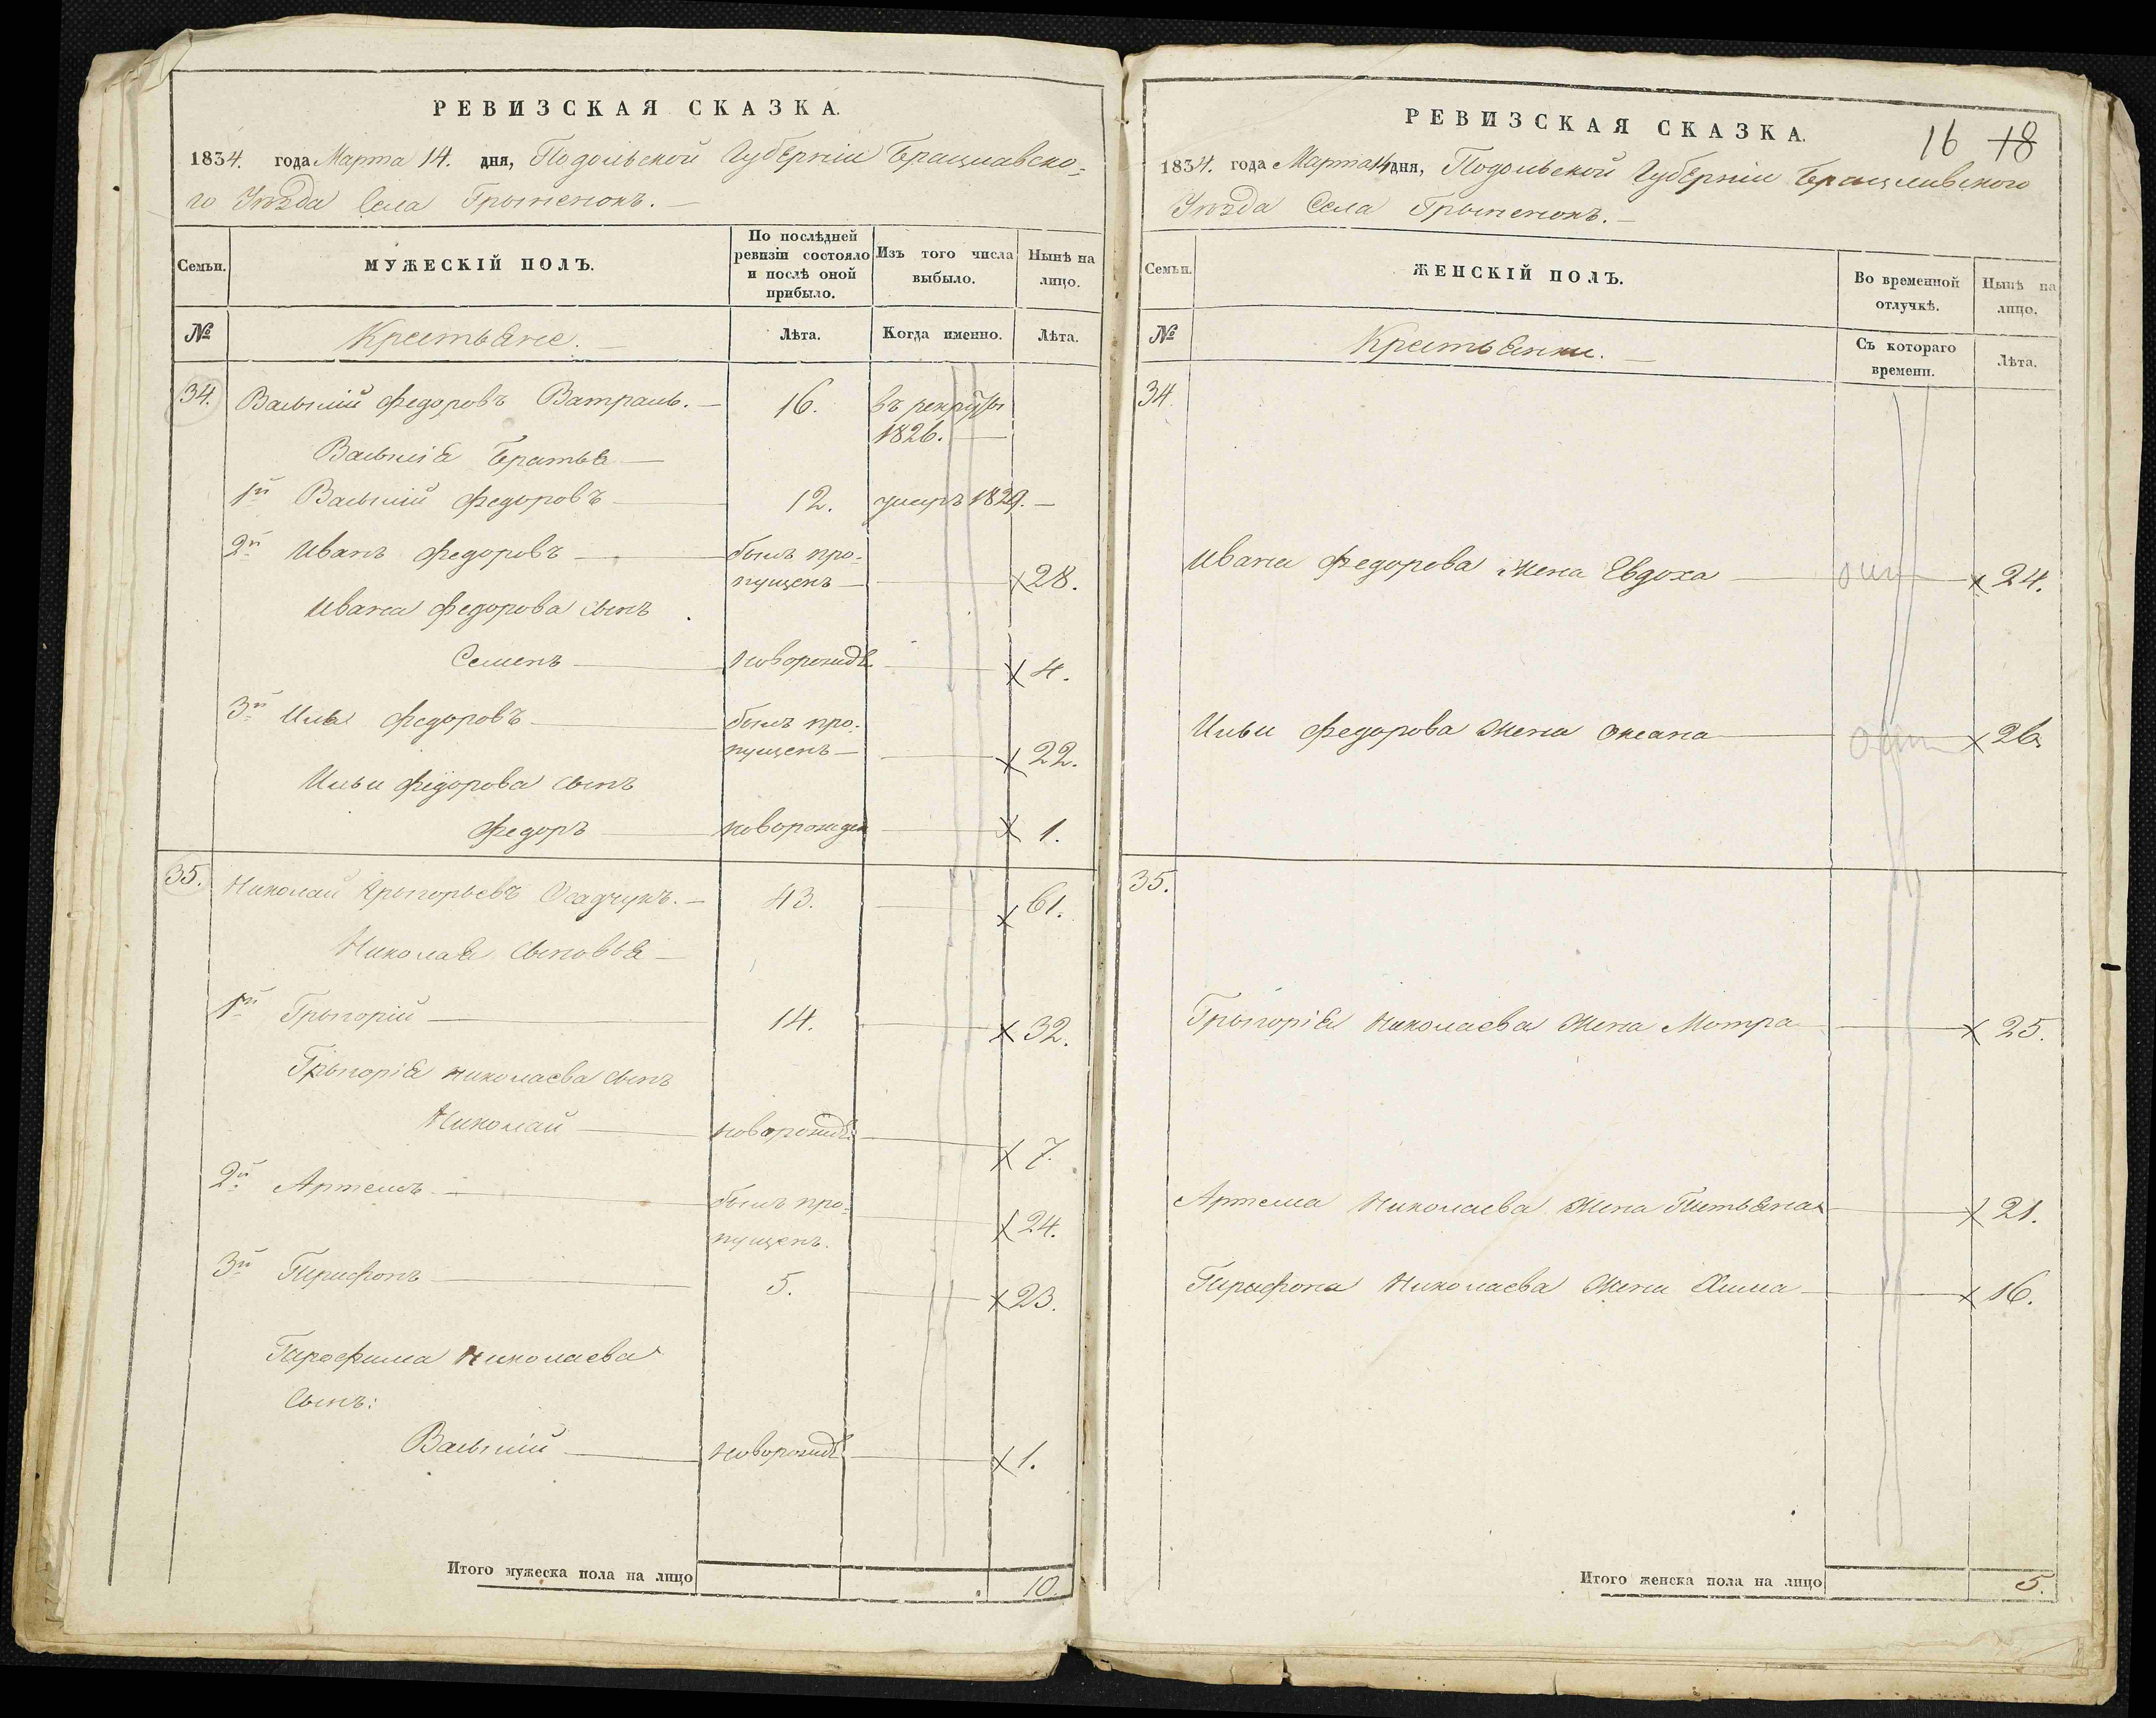 РЕВИЗСКАЯ СКАЗКА.
1834. года Марта 14. дня, Подольской Губерніи Брацлавско-
го Уѣзда Села Грыненокъ.
Семьи.
МУЖЕСКІЙ ПОЛЪ.
По послѣдней ревизіи состояло и послѣ оной прибыло.
Изъ того числа выбыло.
Нынѣ на лицо.
№
Крестьяне.
Лѣта.
Когда именно.
Лѣта.
34. Василій Федоровъ 16. въ рекруты
1826.
Василія Братья
1й Василій Федоровъ 12. умеръ 1829.
2й Иванъ Федоровъ былъ про-
пущенъ 28.
Ивана Федорова сынъ
Семенъ новорожд. 4.
3й Илья Федоровъ былъ про-
пущенъ 22.
Ильи Федорова сынъ
Федоръ новорожден 1.
35. Николай Грыгорьевъ Осадчукъ. 43. 61.
Николая сыновья
1й Грыгорій 14. 32.
Грыгорія Николаева сынъ
Николай новорожд. 7.
2й Артемъ былъ про-
пущенъ. 24.
3й Трифонъ 5. 23.
Трофима Николаева
сынъ:
Василій новорожд. 1.
Итого мужеска пола на лицо 10.
РЕВИЗСКАЯ СКАЗКА.
16 18
1834. года Марта 14 дня, Подольской Губерніи Брацлавского
Уѣзда Села Грыненокъ.
Семьи.
ЖЕНСКІЙ ПОЛЪ.
Во временной отлучкѣ.
Нынѣ на лицо.
№
Крестьянки.
Съ котораго времени.
Лѣта.
34
Ивана Федорова жена Евдоха 24.
Ильи Федорова жена Оксана 26
35.
Грыгорія Николаева жена Мотра 25.
Артема Николаева жена Татьяна 21.
Трифона Николаева жена Хима 16.
Итого женска пола на лицо 5.